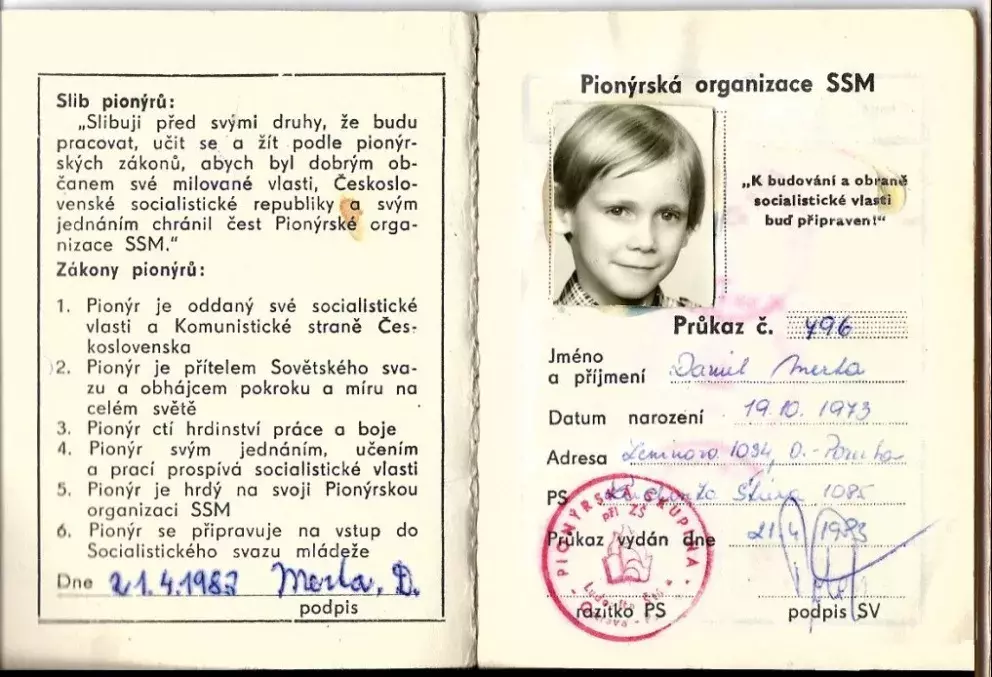 Slib pionýrů:
„Slibuji před svými druhy, že budu
pracovat, učit se a žít podle pionýr-
ských zákonů, abych byl dobrým ob-
čanem své milované vlasti, Českoslo-
venské socialistické republiky a svým
jednáním chránil čest Pionýrské orga-
nizace SSM."
Zákony pionýrů:
1. Pionýr je oddaný své socialistické
vlasti a Komunistické straně Čes-
koslovenska
2. Pionýr je přítelem Sovětského sva-
zu a obhájcem pokroku a míru na
celém světě
3. Pionýr ctí hrdinství práce a boje
4. Pionýr svým jednáním, učením
a prací prospívá socialistické vlasti
5. Pionýr je hrdý na svoji Pionýrskou
organizaci SSM
6. Pionýr se připravuje na vstup do
Socialistického svazu mládeže
Dne 21.4.1983 Merta, D.
podpis
Pionýrská organizace SSM
„K budování a obraně
socialistické vlasti
buď připraven!"
Průkaz č. 496
Jméno
a příjmení Daniel Merta
Datum narození 19.10.1973
Adresa Leninova 1094, O.-Poruba
PS Štúra 1085
Průkaz vydán dne 21.4.1983
razítko PS podpis SV
PIONÝRSKÁ SKUPINA
při ZŠ